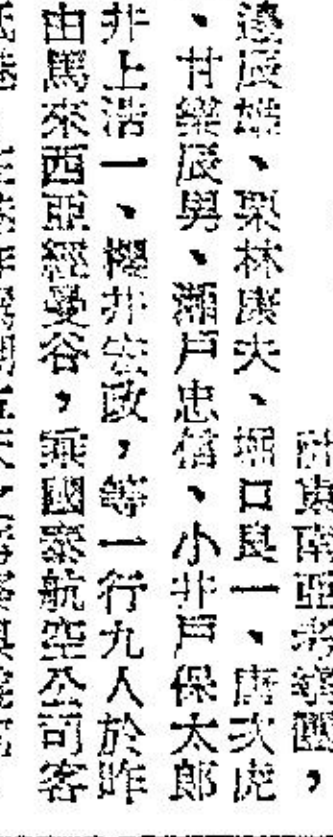 東南亞考察團，
邊辰雄、栗林康夫、堀口良一、唐次虎
、甘樂辰男、瀨戶忠信、小井戶保太郎
井上浩一、櫻井安政，等一行九人於昨
由馬來西亞經曼谷，乘國泰航空公司客